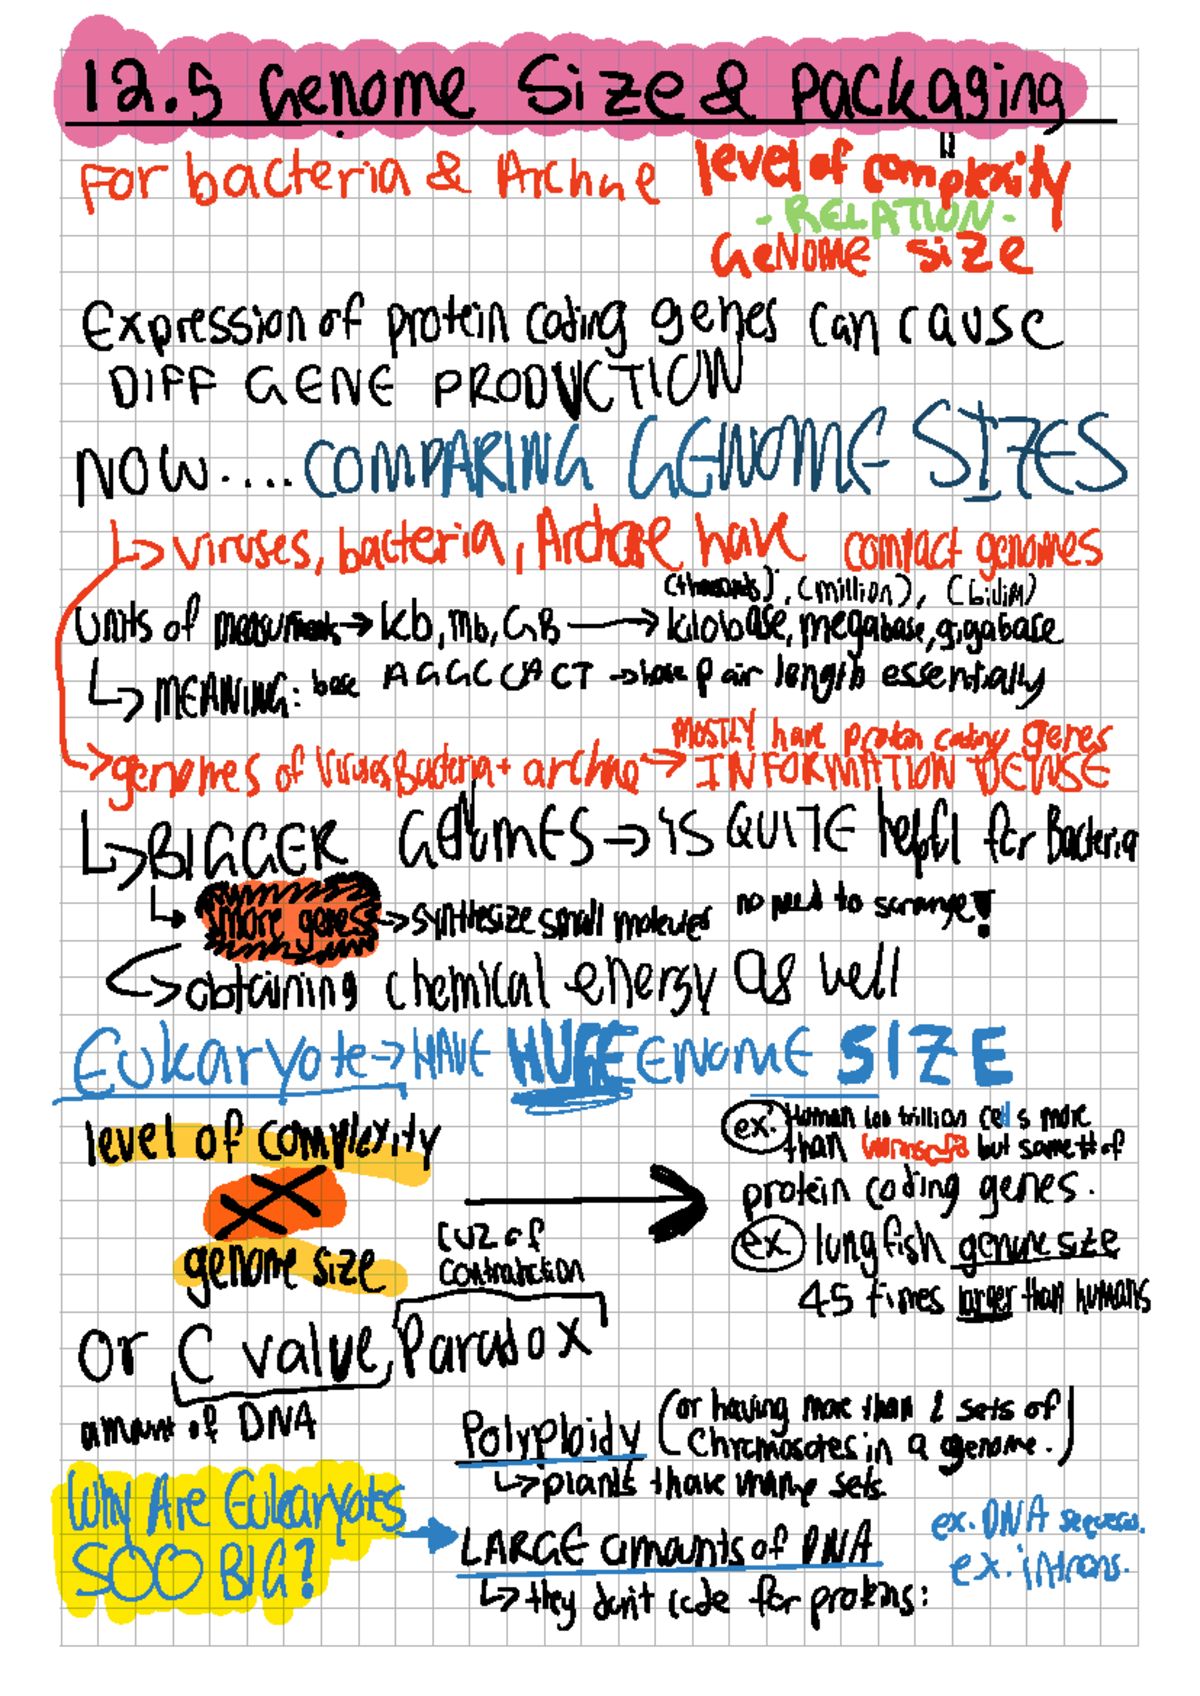 12.5 Genome Size & Packaging
For bacteria & Archae level of complexity
- RELATION -
GENOME size
Expression of protein coding genes can cause
DIFF GENE PRODUCTION
NOW.... COMPARING GENOME SIZES
↳ viruses, bacteria, Archae have compact genomes
(thousands), (million), (billion)
units of → kb, mb, GB → kilobase, megabase, gigabase
↳ MEANING: base AGGCCACT → base pair length essentially
MOSTLY have protein coding genes
→ genomes of Viruses, Bacteria + archae → INFORMATION DENSE
↳ BIGGER GENOMES → is QUITE helpful for Bacteria
↳ more genes → synthesize small molecules no need to !
↳ obtaining chemical energy as well
Eukaryote → HAVE HUGE GENOME SIZE
level of complexity
X
genome size
→
cuz of
contradiction
ex: Human 100 trillion cells more
than but same # of
protein coding genes.
ex lungfish genome size
45 times larger than humans
or C value Paradox
amount of DNA
Polyploidy (or having more than 2 sets of
chromosomes in a genome.)
↳ plants have many sets
Why Are Eukaryotes
SOO BIG?
→ LARGE amounts of DNA
↳ they don't code for proteins:
ex. DNA
ex. introns.